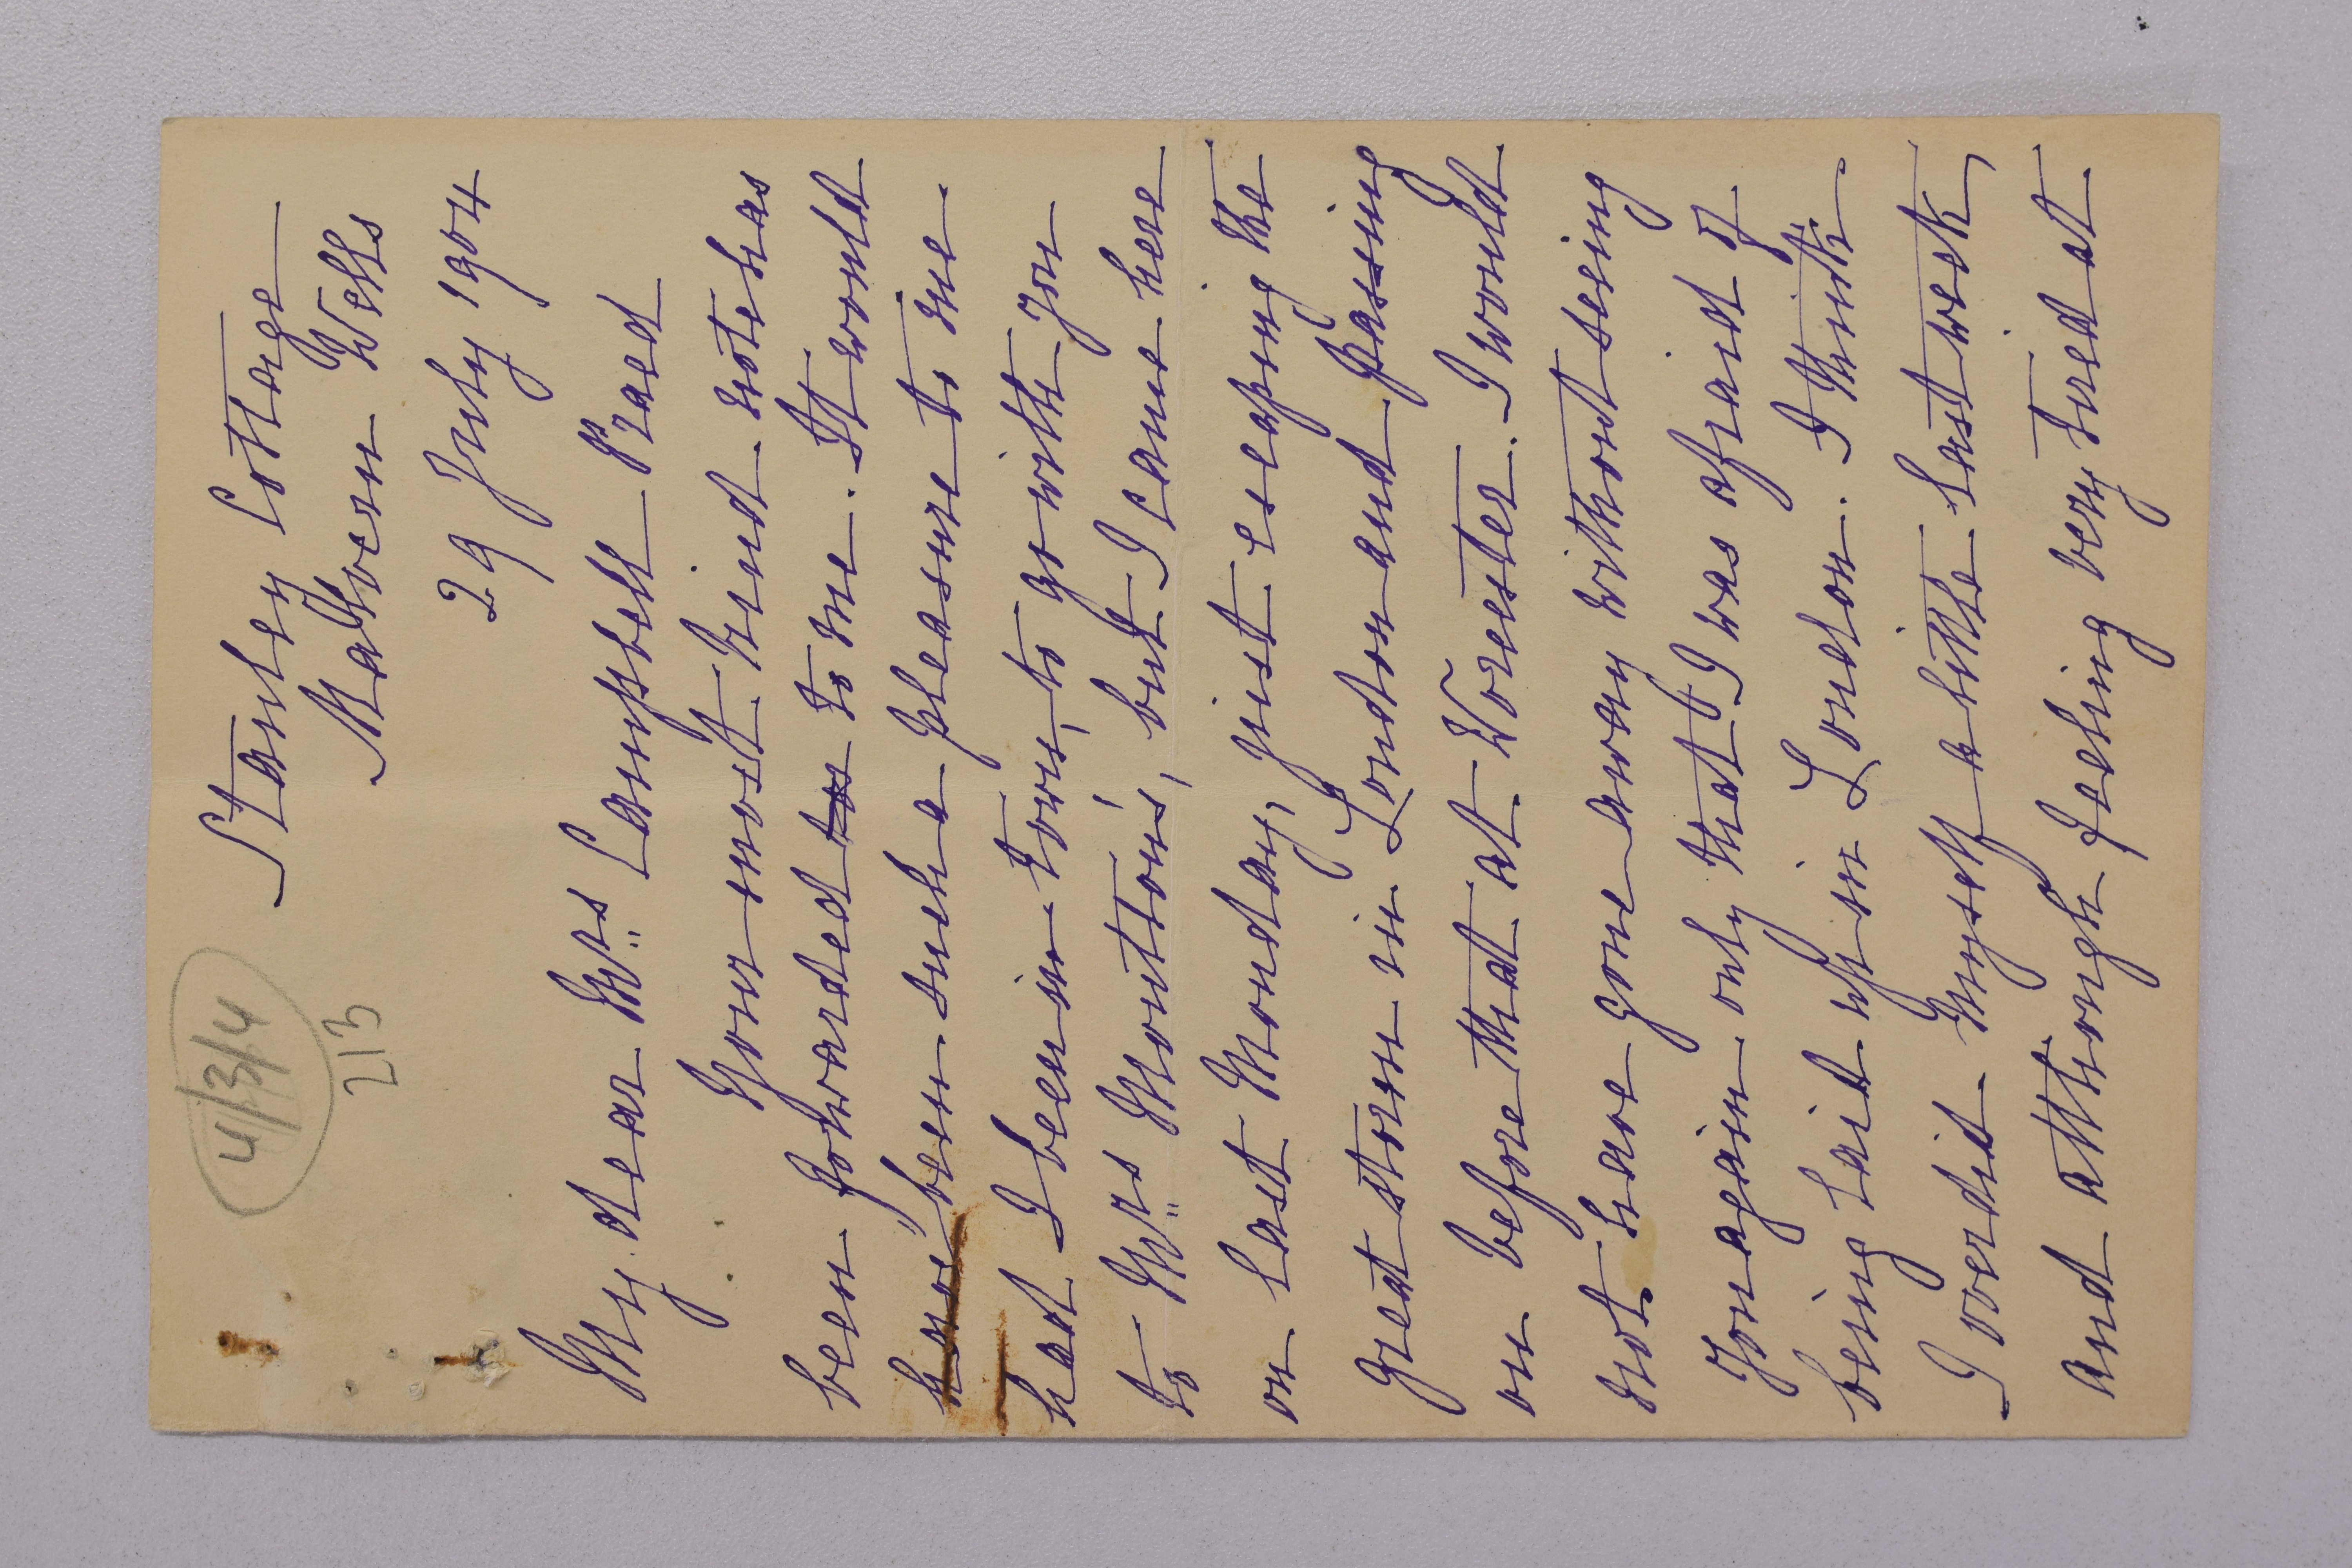 4/3/4
213
Stanley Cottage
Malvern Wells
29 July 1904
My dear Mrs Campbell Praed
Your most kind note has
been forwarded to to me. It would
have been such a pleasure to me
had I been in town, to go with you
to Mrs Moulton's, but I came here
on last Monday, just escaping the
great storm in London and passing
on before that at Worcester. I would
not have gone away without seeing
you again only that I was afraid of
being laid up in London. I think
I overdid myself a little last week,
and although feeling very tired at